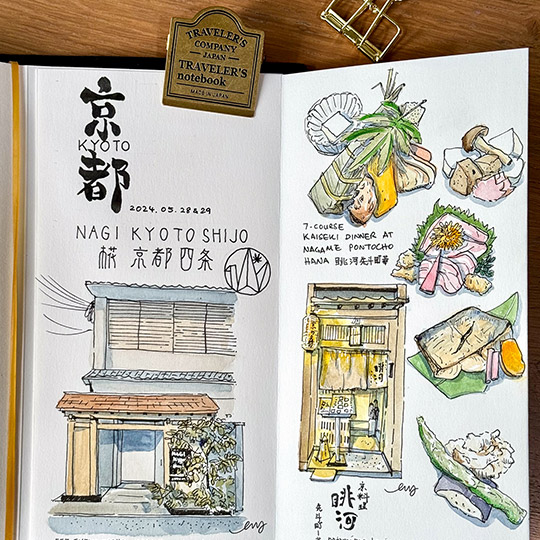 TRAVELER'S
COMPANY
JAPAN
TRAVELER'S
notebook
MADE IN JAPAN
京
KYOTO
都
2024.05.28&29
NAGI KYOTO SHIJO
京都四条
7-COURSE
KAISEKI DINNER AT
NAGAME PONTOCHO
HANA 眺河先斗町
眺河
京料理
眺河
先斗町